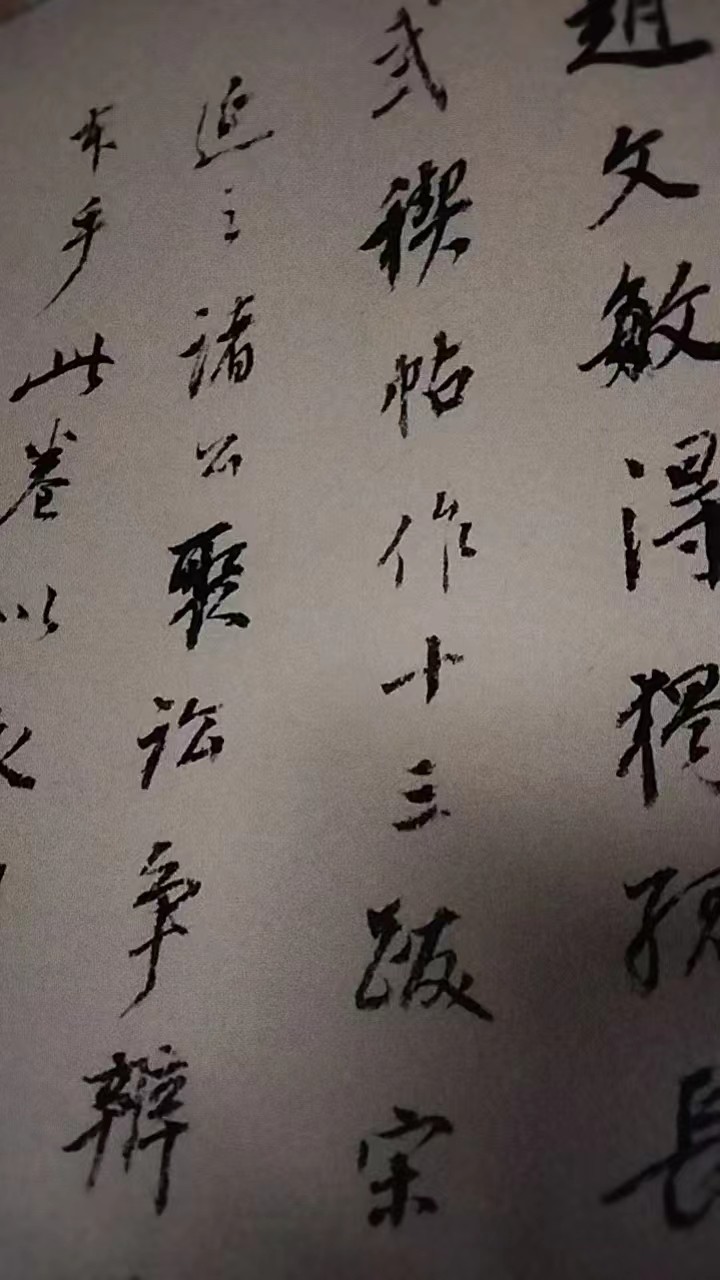 趙文敏得獨孤長
武禊帖作十三跋宋
延之諸公聚訟爭辯
此卷以